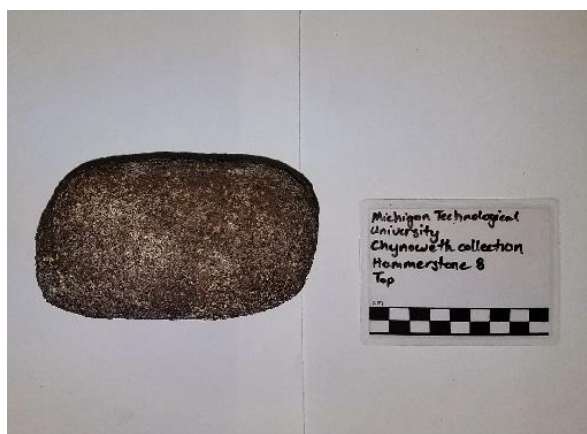 Michigan Technological
University
Chynoweth collection
Hammerstone 8
Top
cm